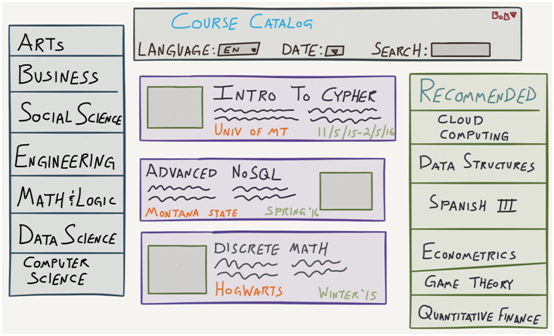 COURSE CATALOG
BOB
LANGUAGE: EN DATE: SEARCH:
ARTS
BUSINESS
SOCIAL SCIENCE
ENGINEERING
MATH & LOGIC
DATA SCIENCE
COMPUTER
SCIENCE
INTRO TO CYPHER
UNIV OF MT 11/5/15-2/5/16
ADVANCED NOSQL
MONTANA STATE SPRING '16
DISCRETE MATH
HOGWARTS WINTER '15
RECOMMENDED
CLOUD
COMPUTING
DATA STRUCTURES
SPANISH III
ECONOMETRICS
GAME THEORY
QUANTITATIVE FINANCE